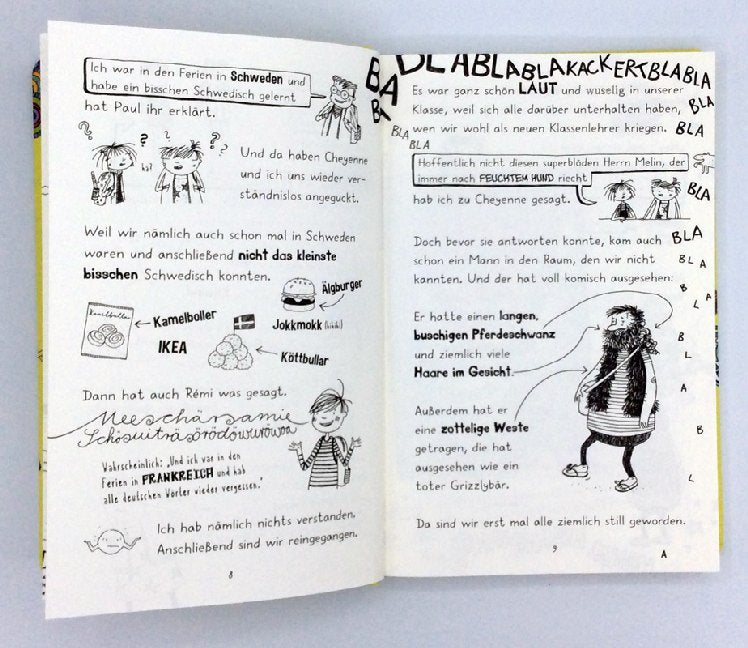 Ich war in den Ferien in Schweden und
habe ein bisschen Schwedisch gelernt
hat Paul ihr erklärt.
? ? ? ?
hä?
Und da haben Cheyenne
und ich uns wieder ver-
ständnislos angeguckt.
Weil wir nämlich auch schon mal in Schweden
waren und anschließend nicht das kleinste
bisschen Schwedisch konnten.
Älgburger
Kamelboller
Kamelboller
Jokkmokk
IKEA
Köttbullar
Dann hat auch Rémi was gesagt.
Meeschärsamie
Wahrscheinlich: „Und ich war in den
Ferien in FRANKREICH und hab
alle deutschen Wörter wieder vergessen."
Ich hab nämlich nichts verstanden.
Anschließend sind wir reingegangen.
8
BLABLABLAKACKERTBLABLA
BLA
BLA
BLA
Es war ganz schön LAUT und wuselig in unserer
Klasse, weil sich alle darüber unterhalten haben,
BLA
wen wir wohl als neuen Klassenlehrer kriegen.
BLA
BLA
Hoffentlich nicht diesen superblöden Herrn Melin, der
immer nach FEUCHTEM HUND riecht
hab ich zu Cheyenne gesagt.
BLA
Doch bevor sie antworten konnte, kam auch
BLA
schon ein Mann in den Raum, den wir nicht
BLA
kannten. Und der hat voll komisch ausgesehen:
B
L A
Er hatte einen langen,
buschigen Pferdeschwanz
und ziemlich viele
Haare im Gesicht.
B
L
A
Außerdem hat er
eine zottelige Weste
getragen, die hat
ausgesehen wie ein
toter Grizzlybär.
B
L
Da sind wir erst mal alle ziemlich still geworden.
9
A